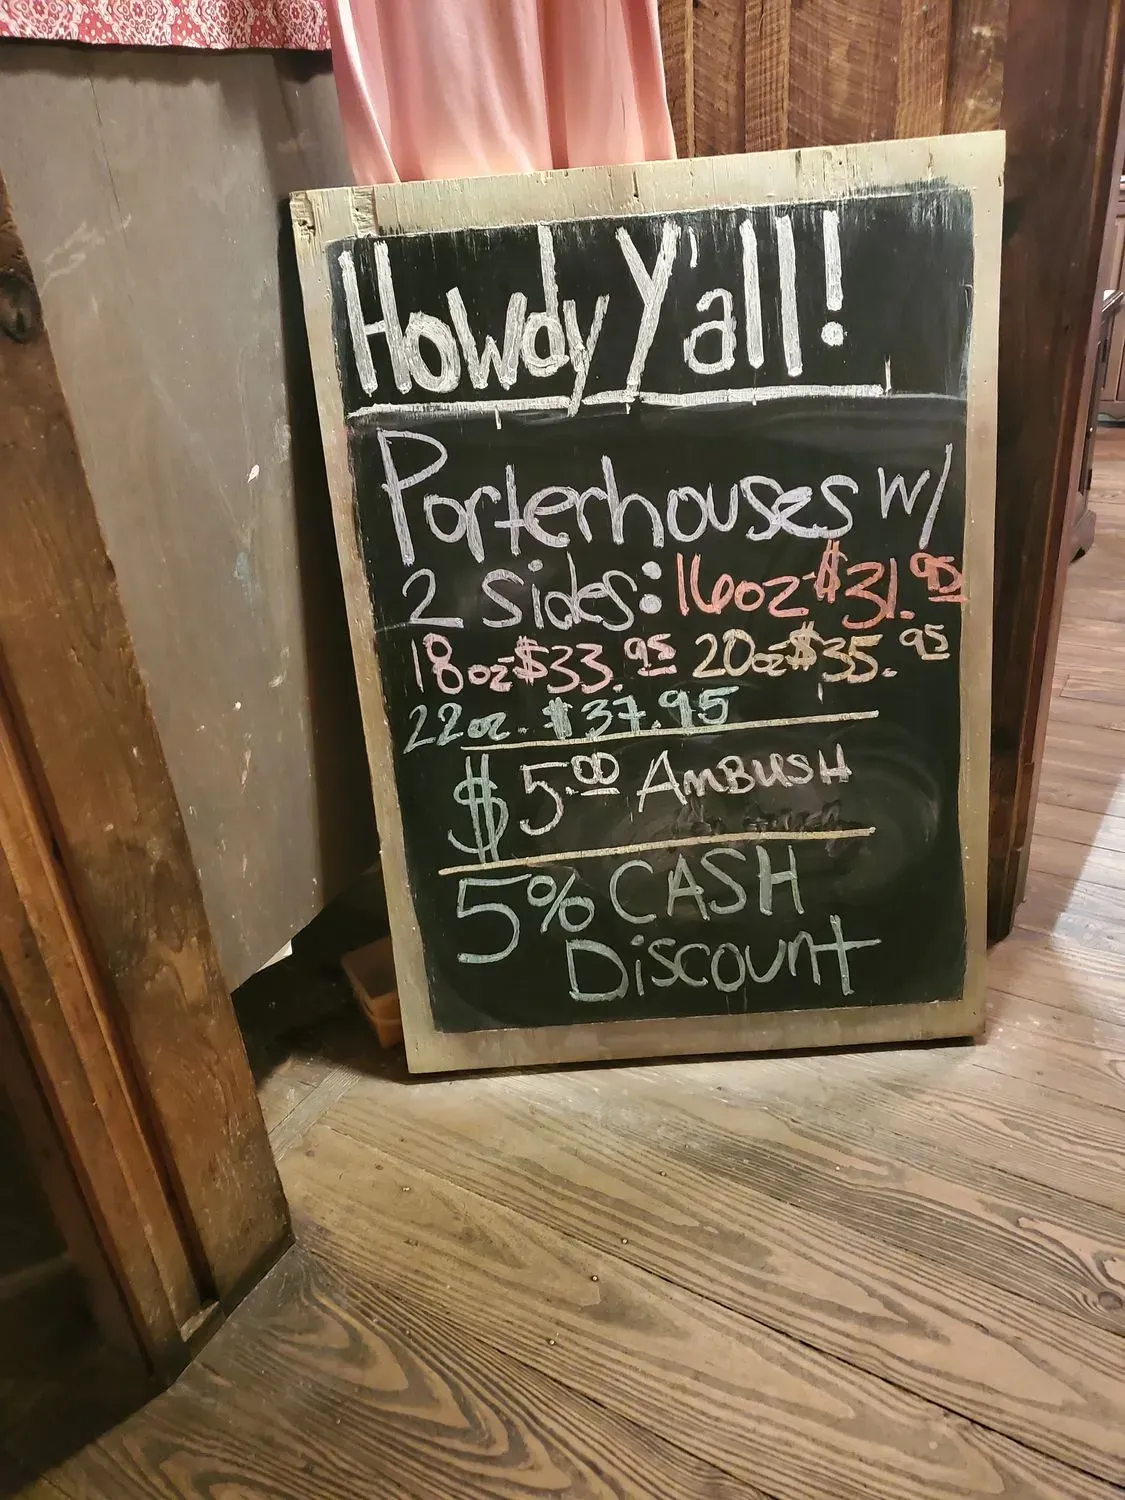 Howdy Y'all!
Porterhouses w/
2 sides: 16oz-$31.95
18oz-$33.95 20oz-$35.95
22oz. $37.95
$5.00 AmBUSH
5% CASH
Discount